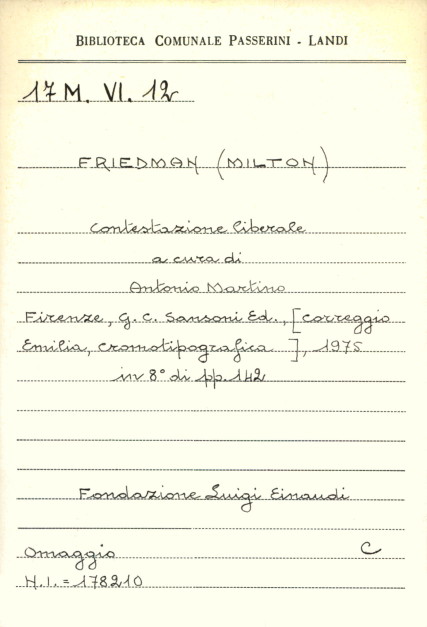 BIBLIOTECA COMUNALE PASSERINI - LANDI
17 M. VI. 12
FRIEDMAN (MILTON)
Contestazione liberale
a cura di
Antonio Martino
Firenze, G. C. Sansoni Ed., [Correggio
Emilia, cromotipografica ], 1975
in 8° di pp. 142
Fondazione Luigi Einaudi
Omaggio C
N.I. = 178210